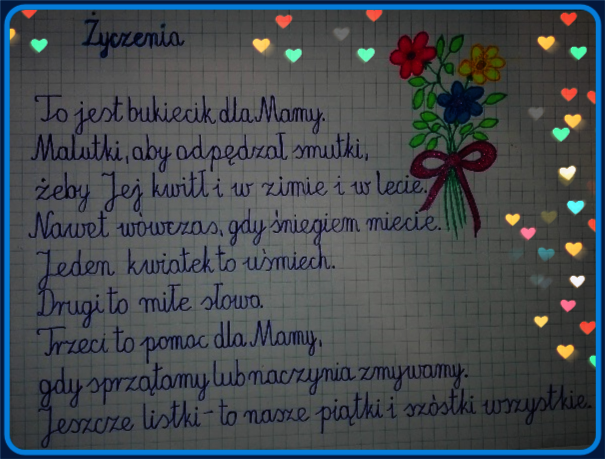 Życzenia
To jest bukiecik dla Mamy.
Malutki, aby odpędzał smutki,
żeby Jej kwitł i w zimie i w lecie.
Nawet wówczas, gdy śniegiem miecie.
Jeden kwiatek to uśmiech.
Drugi to miłe słowa.
Trzeci to pomoc dla Mamy,
gdy sprzątamy lub naczynia zmywamy.
Jeszcze listki - to nasze piątki i szóstki wszystkie.